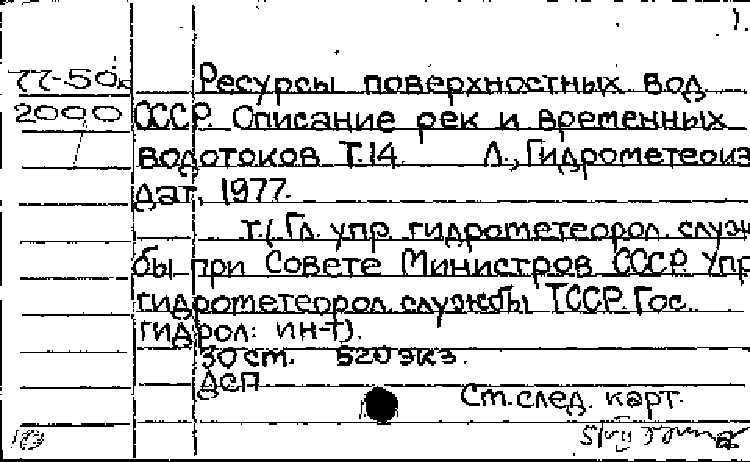 77-50
2000
Ресурсы поверхностных вод
СССР. Описание рек и временных
водотоков Т.14 Л., Гидрометеоиз
дат, 1977.
т.( Гл. упр. гидрометеорол. служ
бы при Совете Министров СССР. Упр
гидрометеорол. службы ТССР. Гос.
гидрол. ин-т).
30 см. 520 экз.
ДСП
См. след. карт.
10